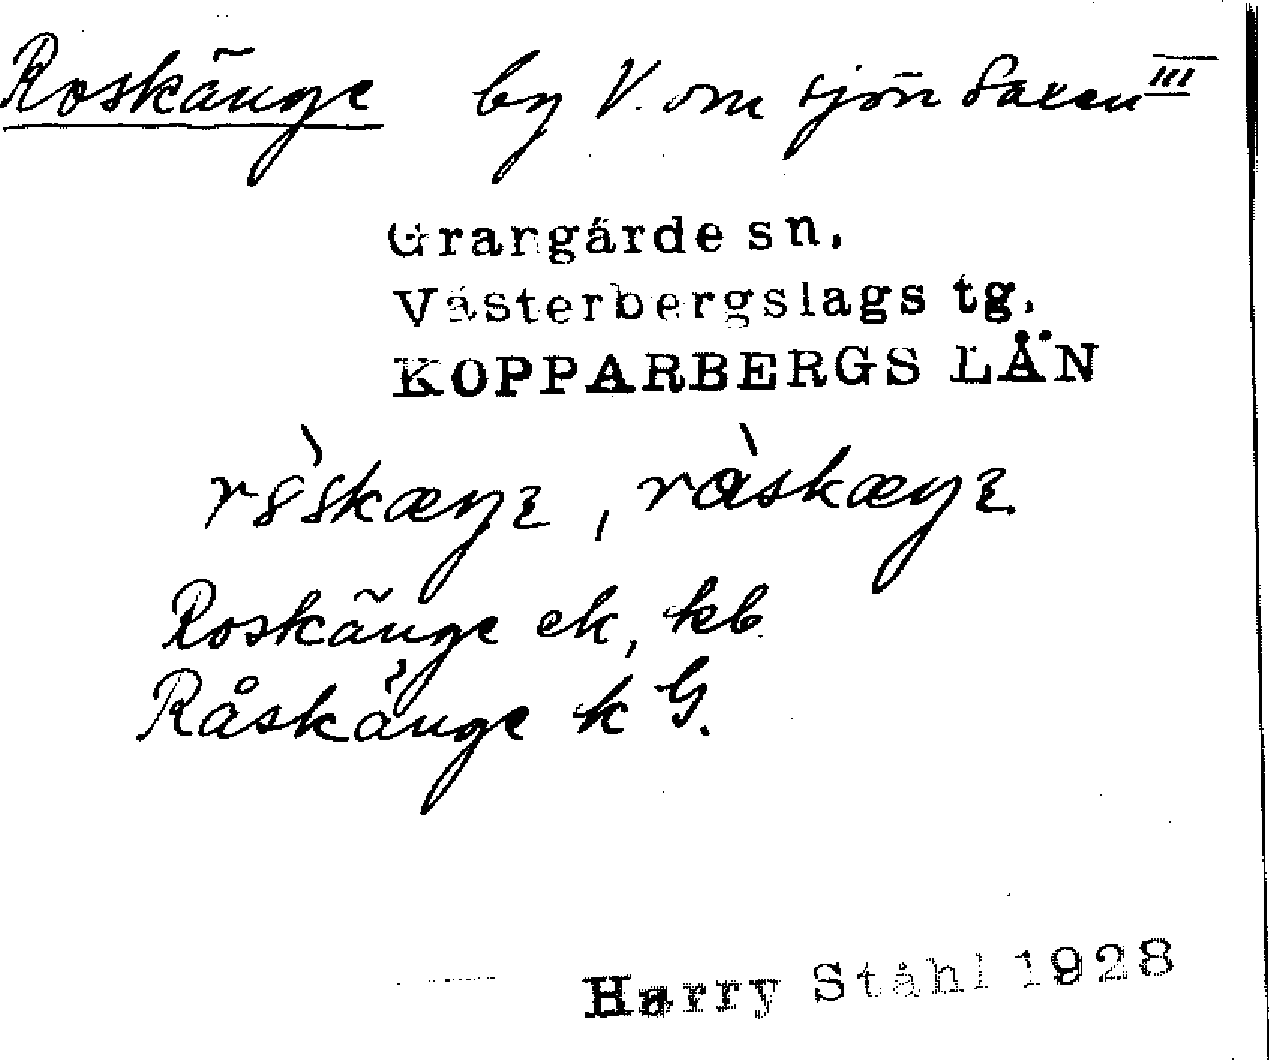 Roskänge by V. om sjön Saxen III
Grangärde sn.
Västerbergslags tg.
KOPPARBERGS LÄN
Roskänge ek, kb.
Råskänge k G.
Harry Ståhl 1928